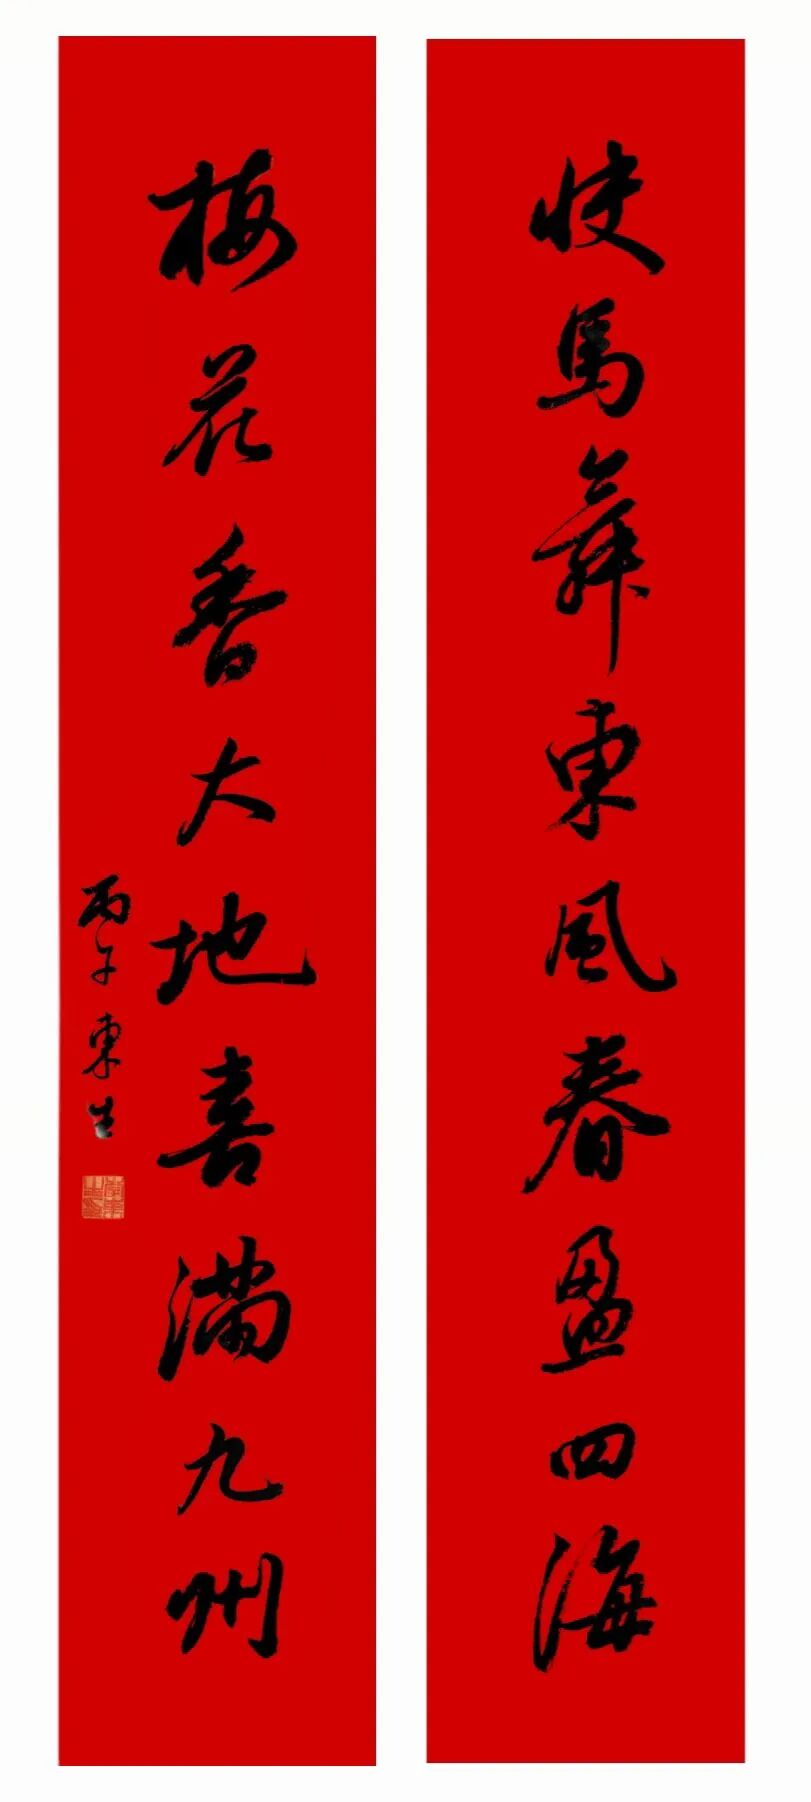 快馬舞東風春盈四海
梅花香大地喜滿九州
丙午東生